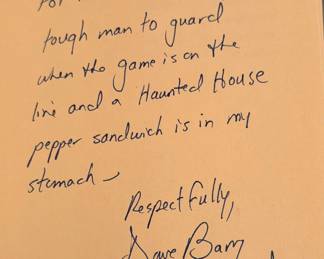 For
tough man to guard
when the game is on the
line and a Haunted House
pepper sandwich is in my
stomach –
Respectfully,
Dave Barry